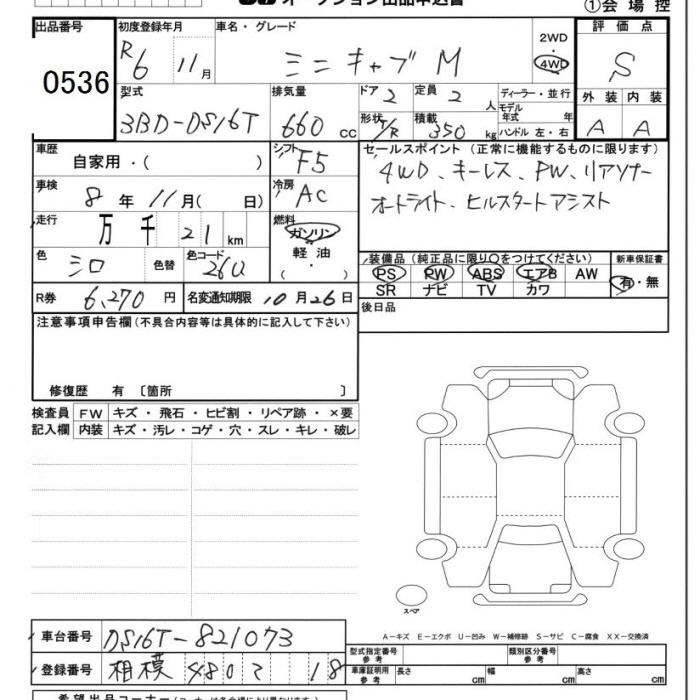 オークション出品申込書 ①会場控
出品番号 初度登録年月 車名・グレード 評価点
0536 R6 11月 ミニキャブ M 2WD 4WD S
型式 排気量 ドア 定員 ディーラー・並行 外装 内装
3BD-DS16T 660cc 2 2人 モデル年式 年 A A
形状 T/R 積載 350kg ハンドル 左・右
車歴 自家用・( ) シフト F5 セールスポイント(正常に機能するものに限ります)
車検 8年 11月( 日) 冷房 AC 4WD、キーレス、PW、リアソナー
オートライト、ヒルスタートアシスト
走行 万 千 21 km 燃料 ガソリン
軽油
( ・ )
色 シロ 色替 色コード 26U
装備品(純正品に限り○をつけてください) 新車保証書
PS PW ABS エアB AW 有・無
SR ナビ TV カワ
R券 6,270円 名変通知期限 10月26日
後日品
注意事項申告欄(不具合内容等は具体的に記入して下さい)
修復歴 有 〔箇所 〕
検査員 FW キズ・飛石・ヒビ割・リペア跡・×要
記入欄 内装 キズ・汚レ・コゲ・穴・スレ・キレ・破レ
スペア
A-キズ E-エクボ U-凹み W-補修跡 S-サビ C-腐食 XX-交換済
車台番号 DS16T-821073
型式指定番号 参考 類別区分番号 参考
登録番号 相模 480 2 18
車庫証明用 参考 長さ cm 幅 cm 高さ cm
希望出品コーナー